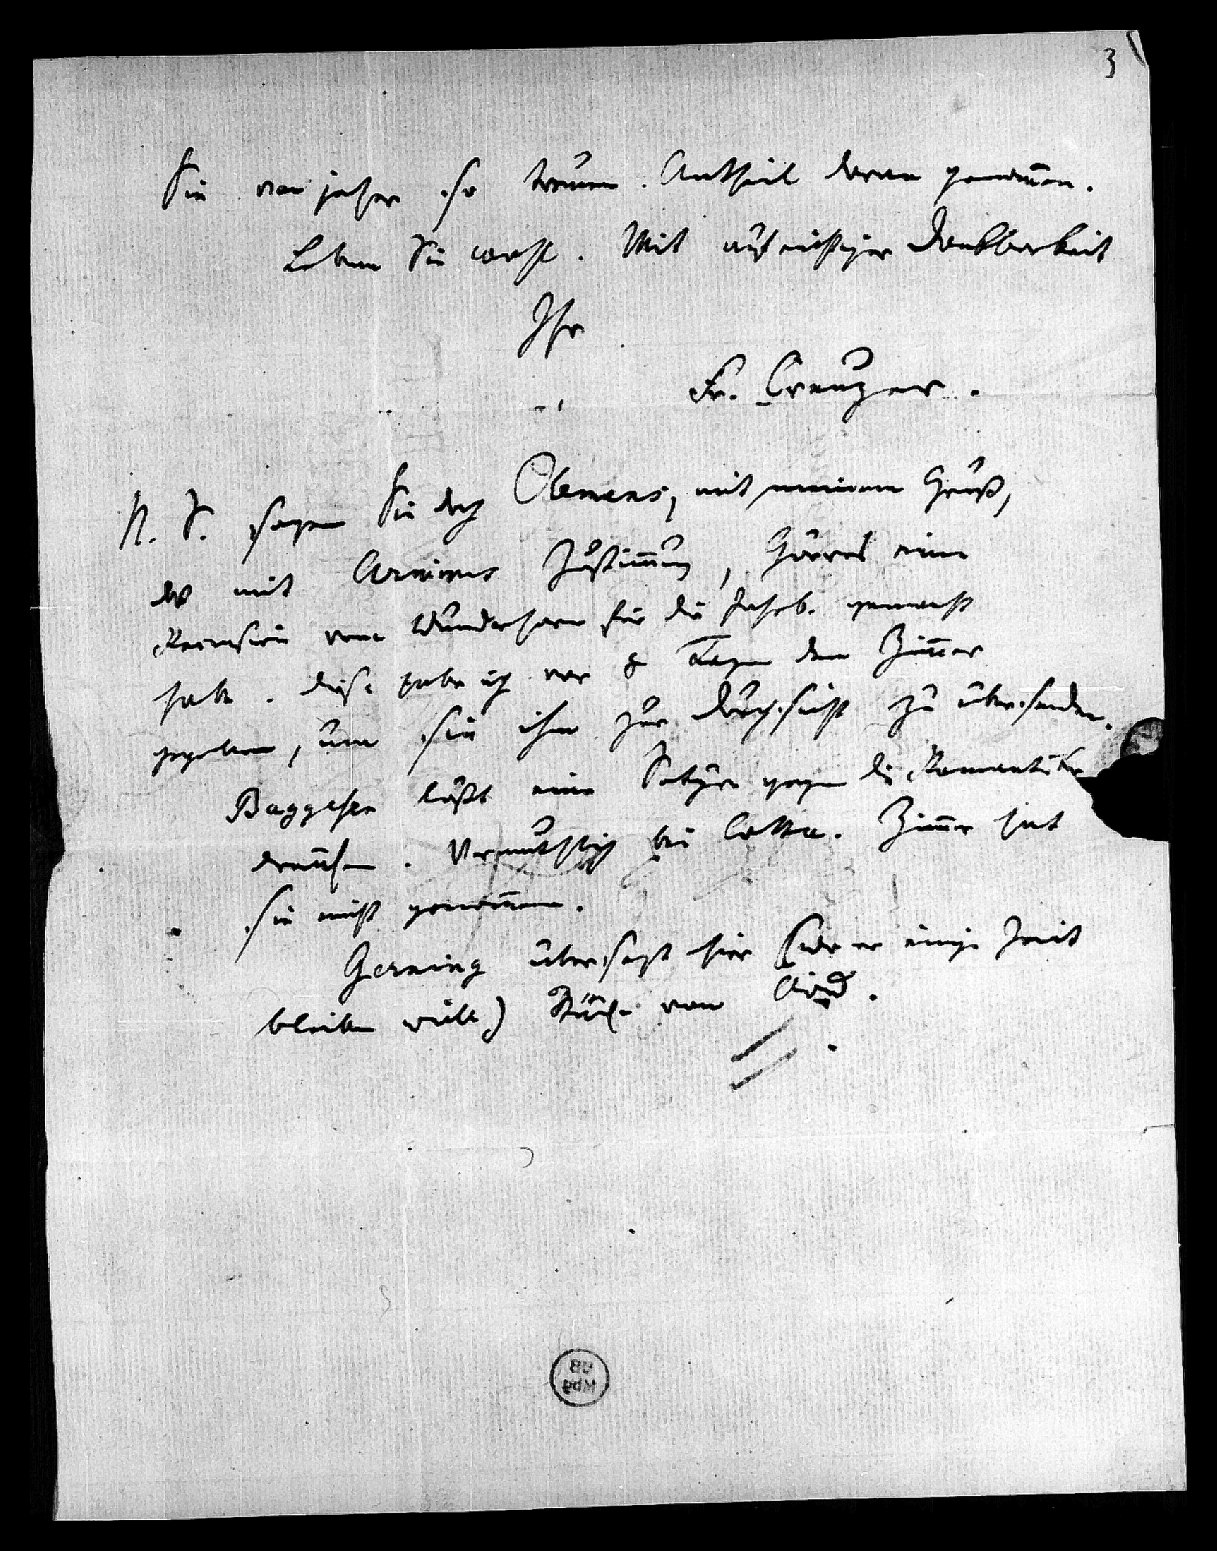 3
Sie von jeher so treuen Antheil daran genom̅en.
Leben Sie wohl. Mit aufrichtiger Dankbarkeit
Ihr
Fr. Creuzer.
N. S. sagen Sie doch Clemens, mit meinem Gruß,
daß mit Arnims Zustim̅ung, Görres eine
Recension vom Wunderhorn für die Jahrb. gemacht
habe. diese habe ich vor 8 Tagen dem Zim̅er
gegeben, um sie ihm zur Durchsicht zu übersenden.
Baggesen läßt eine Satyre gegen die Romantiker
drucken. Vermuthlich bei Cotta. Zim̅er hat
sie nicht genom̅en.
Gerning übersezt hier (wo er einige Zeit
bleiben will) Stücke von Ovid.